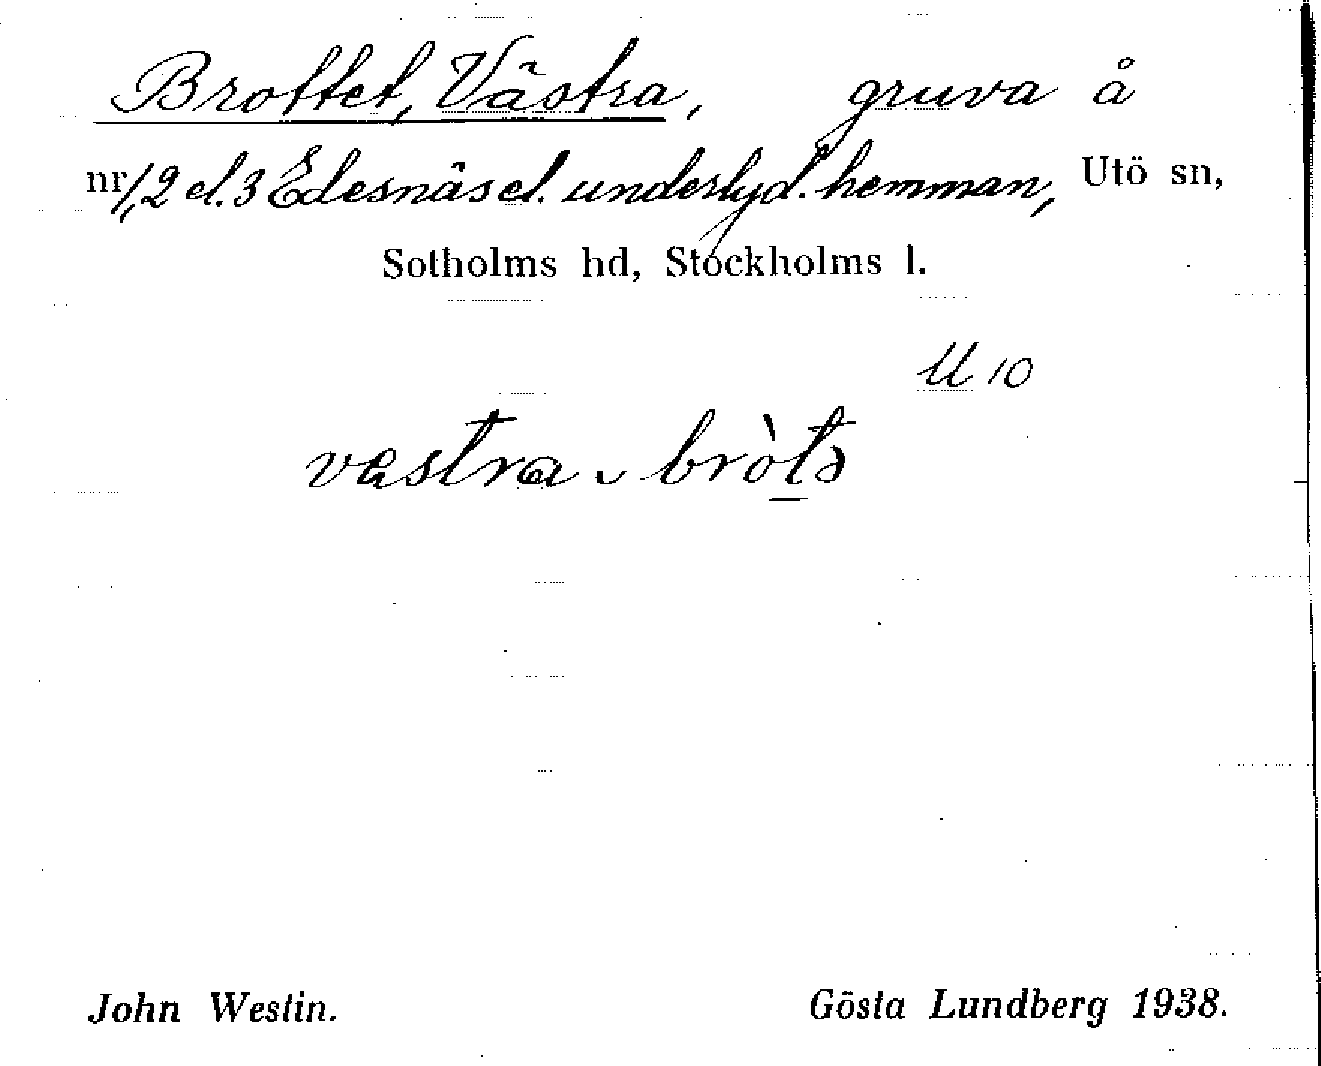 Brottet, Västra, gruva å
nr 1, 2 el. 3 Edesnäs el. underlyd. hemman, Utö sn,
Sotholms hd, Stockholms l.
U 10
vastra ‿ bròtə
John Westin. Gösta Lundberg 1938.